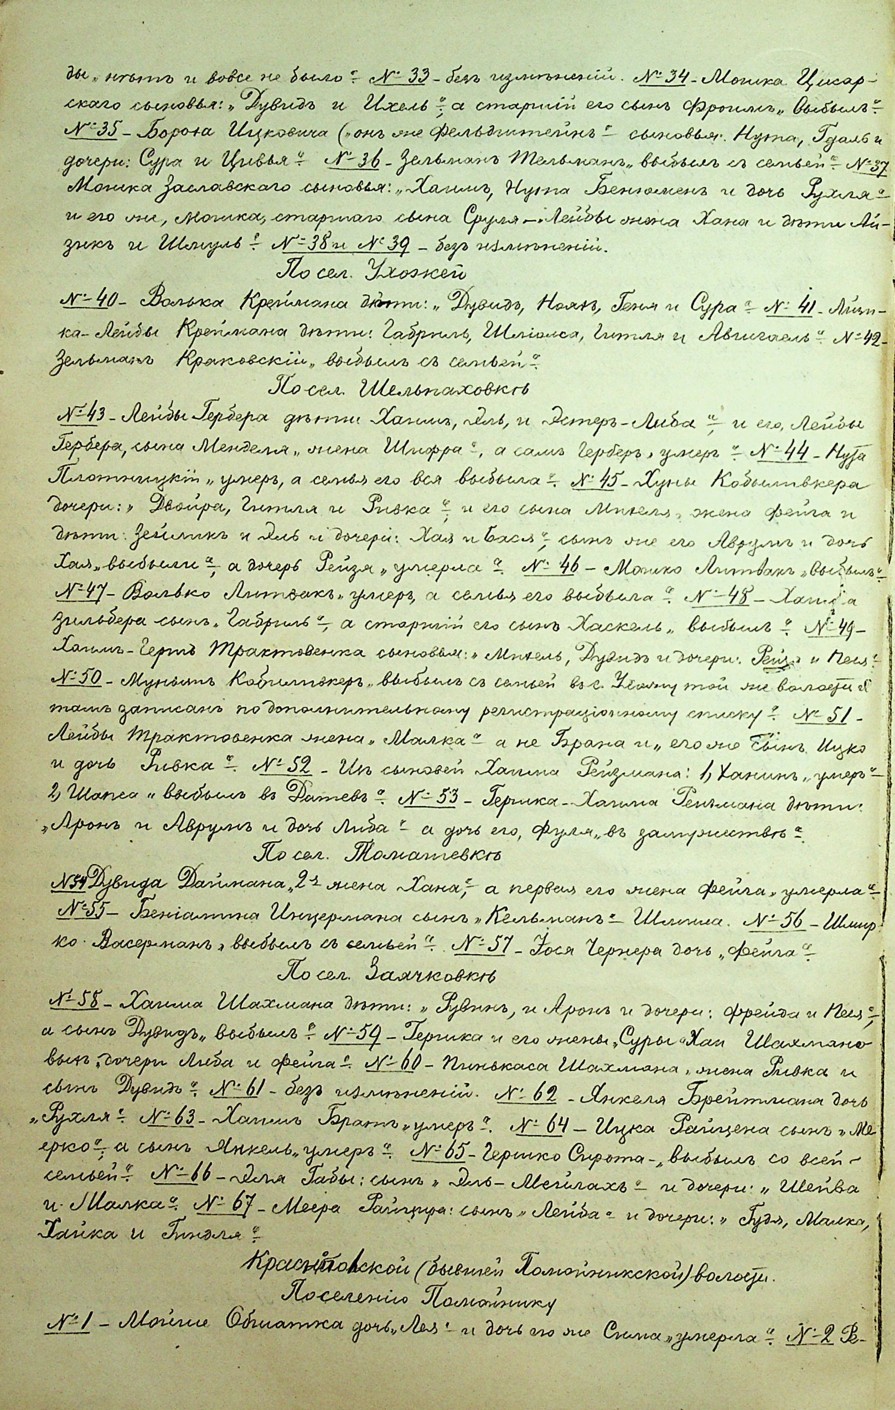 ды, нѣтъ и вовсе не было“. №33 – безъ измѣненій. №34 – Мошка Цисар-
скаго сыновья: „Дувидъ и Ихель“, а старшій его сынъ Фроимъ „выбылъ“
№35 – Бороха Ицковича (онъ же Фельдштейнъ“ сыновья: Нута, Гдаль и
дочери: Сура и Цивья“. №36 – Зельманъ Тельманъ „выбылъ съ семьей“. №37
Мошка Заславскаго сыновья: „Хаимъ, Нута Бенюменъ и дочь Рухля“
и его же, Мошка, старшаго сына Сруля-Лейбы жена Хана и дѣти Ай-
зикъ и Шмуль“. №38 и №39 – безъ измѣненій.
По сел. Ухожей
№40 – Волька Креймана дѣти: „Дувидъ, Ноях, Геня и Сура“ №41 – Айзи-
ка-Лейбы Креймана дѣти: Габриль, Шліомка, Гитля и Авигаель“. №42 –
Зельманъ Краковскій „выбылъ съ семьей“.
По сел. Шельпаховкѣ
№43 – Лейбы Гербера дѣти Хаимъ, Эль, и Эстеръ-Либа“, и его, Лейбы
Гербера, сына Менделя „жена Шифра“, а самъ Герберъ „умеръ“. №44 – Нута
Плотницкій „умеръ, а семья его вся выбыла“. №45 – Хуны Кобыливкера
дочери: „Двойра, Гитля и Ривка“, и его сына Михеля, жена Фейга и
дѣти: Зейликъ и Эль и дочери: Хая и Бася“, сынъ же его Аврумъ и дочь
Хая „выбыли“, а дочерь Рейзя „умерла“. №46 – Мошко Литвакъ „выбылъ“
№47 – Волько Литвакъ „умеръ, а семья его выбыла“. №48 – Хаима
Зильбера сынъ „Габриль“, а старшій его сынъ Хаскель „выбылъ“. №49 –
Хаимъ-Герша Трактовенка сыновья: „Михель, Дувидъ и дочери: Рейзя и Песя“
№50 – Муньишъ Кобиливкеръ „выбылъ съ семьей въ г. Умань той же волости и
тамъ записанъ по дополнительному регистраціонному списку“. №51 –
Лейбы Трактовенка жена „Малка“ а не Брана и „его же сынъ Ицко
и дочь Ривка“. №52 – Изъ сыновей Хаима Рейзмана: 1, Ханинъ „умеръ“
2, Шапса „выбылъ въ Дашевъ“. №53 – Гершка-Хаима Рейзмана дѣти:
„Аронъ и Аврумъ и дочь Либа“ а дочь его, Фуля „въ замужествѣ“.
По сел. Томашевкѣ
№54 Дувида Даймана „2-я жена Хана“, а первая его жена Фейга „умерла“
№55 – Беніамина Инцермана сынъ „Кельманъ“ Шлима. №56 – Шмир-
ко Васерманъ „выбылъ съ семьей“. №57 – Іося Чернера дочь „Фейга“
По сел. Заячковкѣ
№58 – Хаима Шахмана дѣти: „Рувинъ, и Аронъ и дочери: Фрейда и Песя“,
а сынъ Дувидъ „выбылъ“. №59 – Гершка и его жены „Суры-Хаи Шахмано-
выхъ, дочери Либа и Фейга“. №60 – Пинькаса Шахмана „жена Ривка и
сынъ Дувидъ“. №61 – безъ измѣненій. №62 – Янкеля Брейтмана дочь
„Рухля“. №63 – Хаимъ Братъ „умеръ“. №64 – Ицка Райцена сынъ „Ме-
ерко“, а сынъ Янкель „умеръ“. №65 – Гершко Сирота – „выбылъ со всей
семьей“. №66 – Эля Габы: сынъ „Эль-Мейлахъ“ и дочери: „Шейва
и Малка“. №67 – Меера Райцира: сынъ „Лейба“ и дочери: „Гудя, Малка,
Хайка и Гиндля“
Краснопольской (бывшей Помойникской) волости.
Поселенію Помойнику
№1 – Мойше Обшатка дочь „Лея“ и дочь по же Сима „умерла“. №2 Ре-